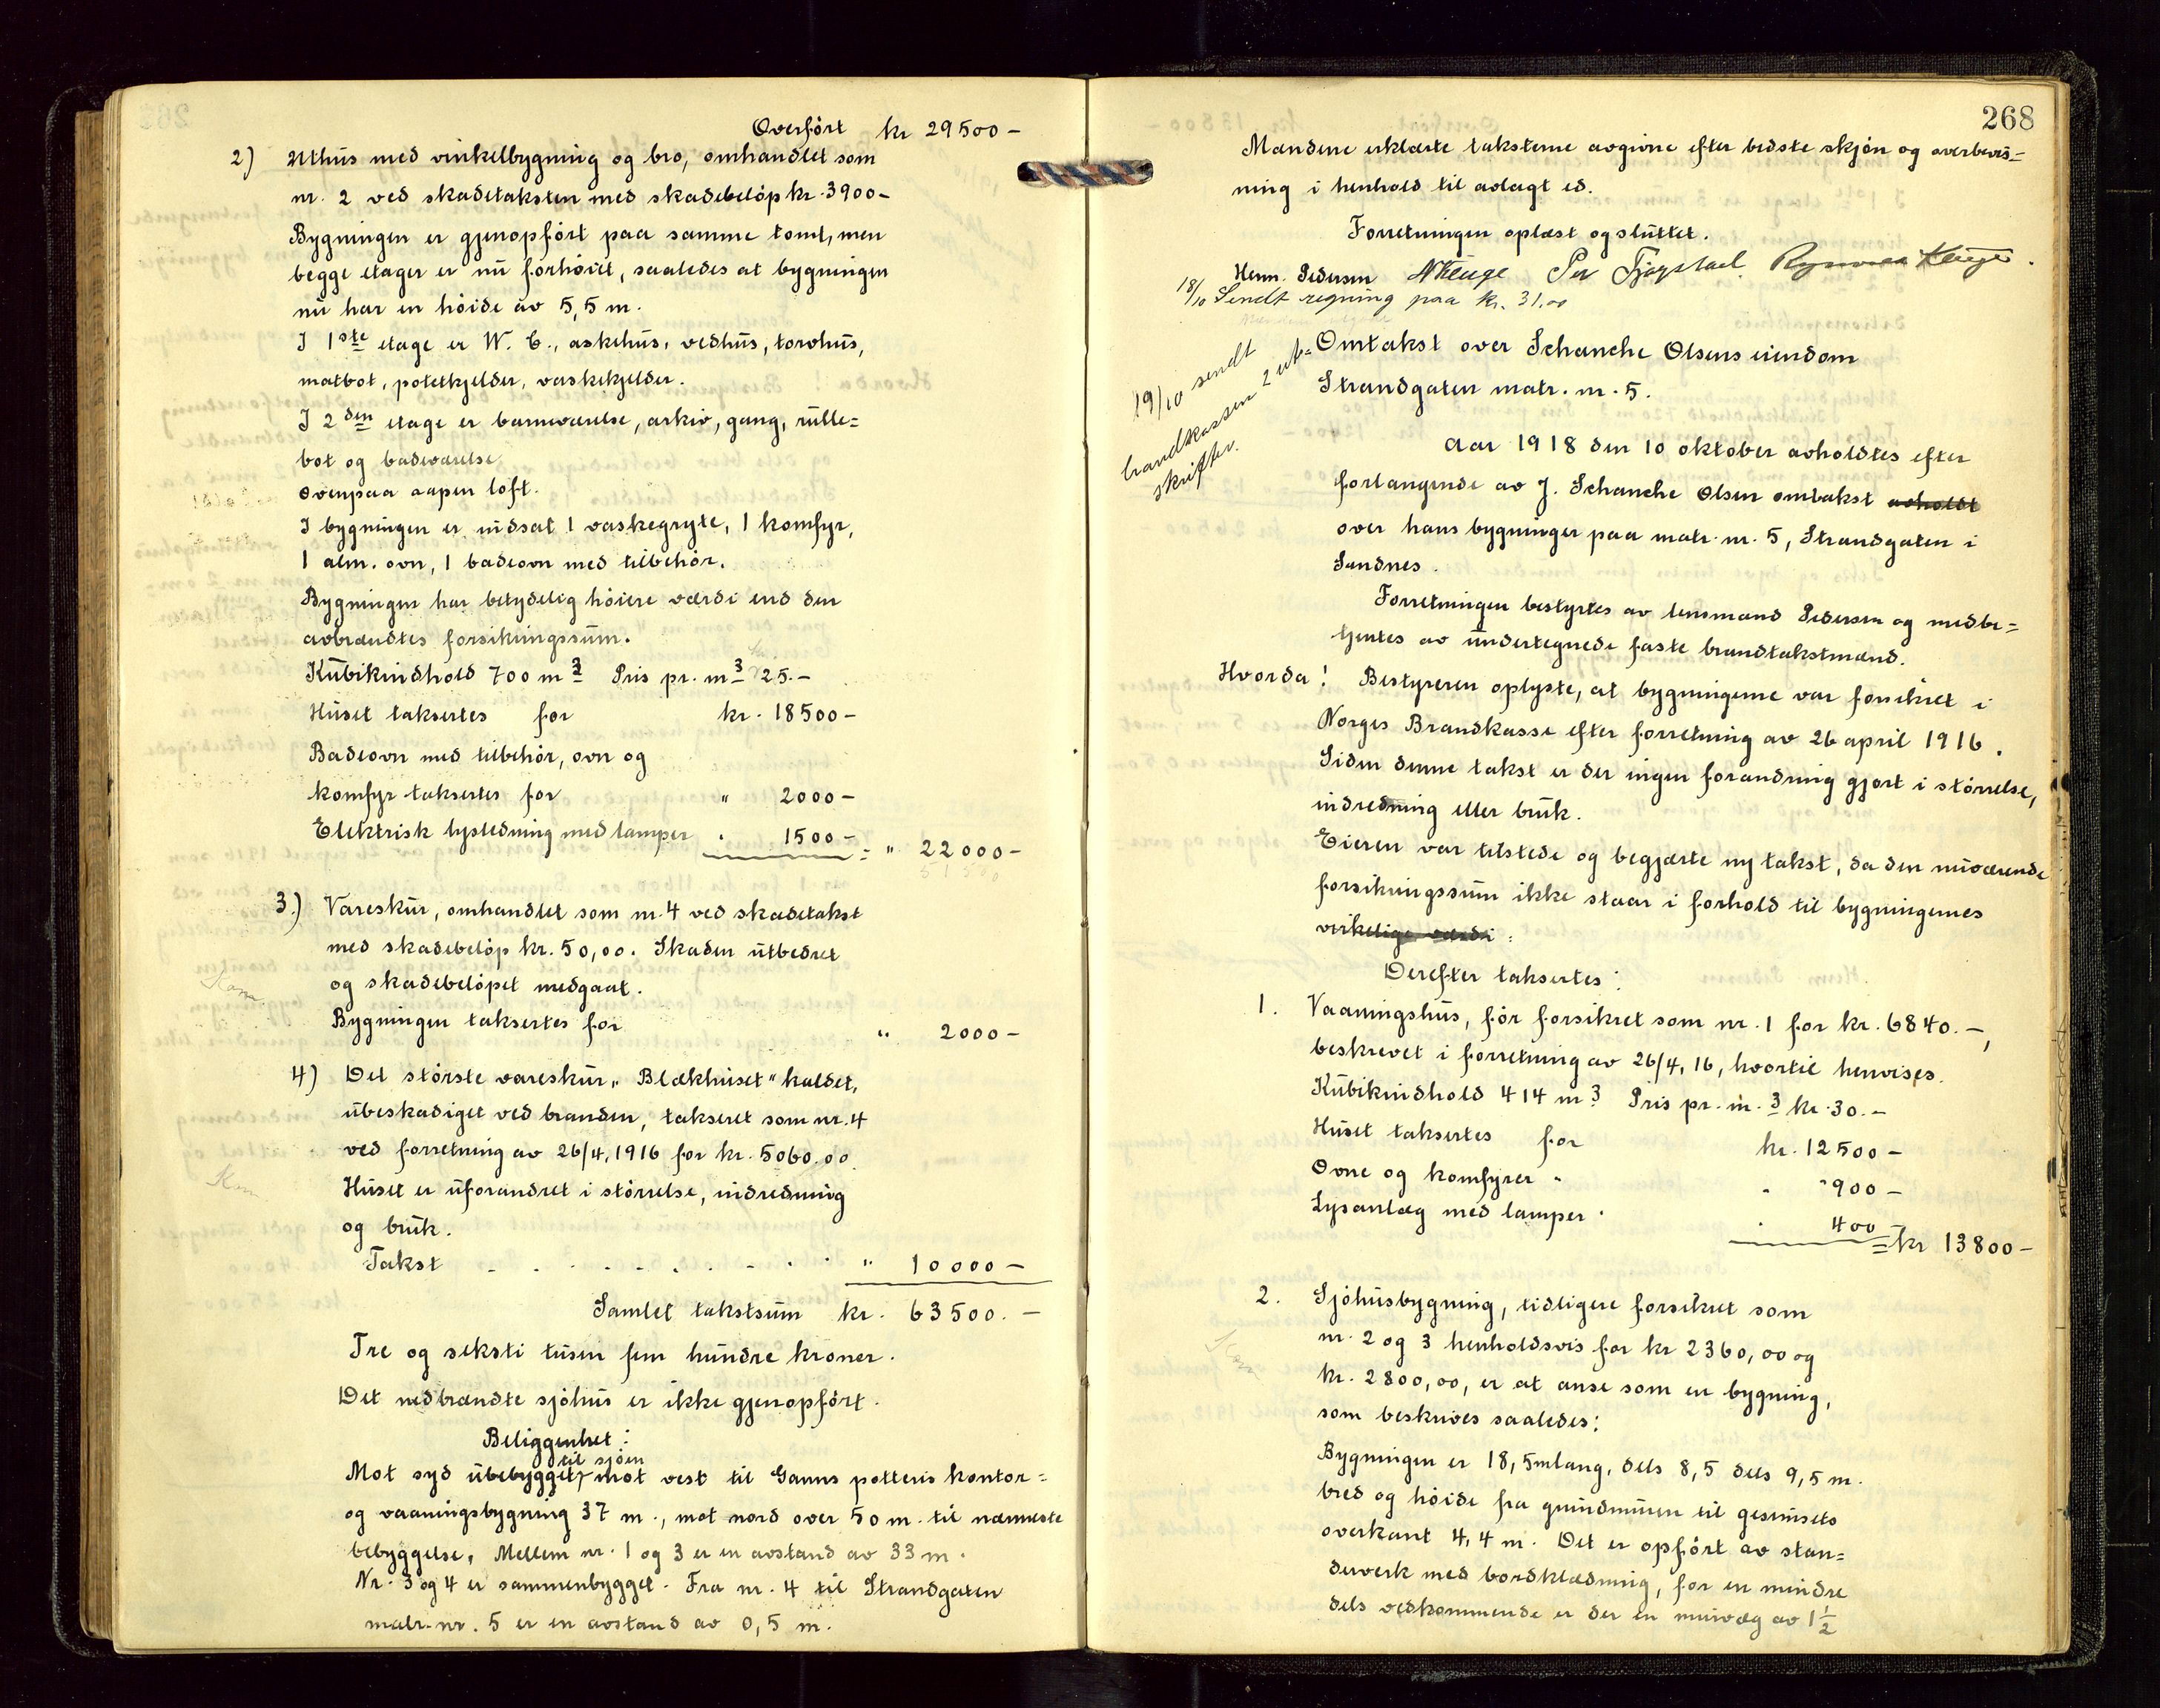 Overført kr 29500 -
2) Uthus med vinkelbygning og bro, omhandlet som
nr. 2 ved skadetaksten med skadebeløp kr. 3900-
Bygningen er gjenopført paa samme tomt, men
begge etager er nu forhøiet, saaledes at bygningen
nu har en høide av 5,5 m.
I 1ste etage er W. C., askehus, vedhus, torvhus,
matbot, potetkjelder, vaskekjelder.
I 2den etage er barneværelse, arkiv, gang, rulle=
bot og badeværelse
Ovenpaa aapen loft.
I bygningen er indsat 1 vaskegryte, 1 komfyr,
1 alm. ovn, 1 badeovn med tilbehør.
Bygningen har betydelig høiere værdi end den
avbrændtes forsikringssum.
Kubikindhold 700 m3 Pris pr. m3 25.-
Huset taksertes for kr. 18500-
Badeovn med tilbehør, ovn og
komfyr taksertes for " 2000-
Elektrisk lysledning med lamper " 1500- = " 22000-
3.) Vareskur, omhandlet som nr. 4 ved skadetakst
med skadebeløp kr. 50,00. Skaden utbedret
og skadebeløpet medgaat.
Bygningen taksertes for " 2000-
4) Det største vareskur „Blækhuset" kaldet,
ubeskadiget ved branden, takseret som nr. 4
ved forretning av 26/4, 1916 for kr. 5060.00.
Huset er uforandret i størrelse, indredning
og bruk.
Takst - . . . . . . . " 10000-
Samlet takstsum kr. 63500.-
Tre og seksti tusen fem hundre kroner.
Det nedbrændte sjøhus er ikke gjenopført.
Beliggenhet:
til sjøen
Mot syd ubebygget, mot vest til Ganns potteris kontor=
og vaaningsbygning 37 m., mot nord over 50 m. til nærmeste
bebyggelse. Mellem nr. 1 og 3 er en avstand av 33 m.
Nr. 3 og 4 er sammenbygget. Fra nr. 4 til Strandgaten
matr. nr. 5 er en avstand av 0,5 m.
268
Mændene erklærte taksterne avgivne efter bedste skjøn og overbevis=
ning i henhold til avlagt ed.
Forretningen oplæst og sluttet.
Herm. Pedersen Per Tjøgstad
18/10 Sendt regning paa kr. 31,00
19/10 sendt
brandkassen 2 ut=
skrifter.
Omtakst over Schanche Olsens eiendom
Strandgaten matr. nr. 5.
Aar 1918 den 10 oktober avholdtes efter
forlangende av J. Schanche Olsen omtakst avholdt
over hans bygninger paa matr. nr. 5, Strandgaten i
Sandnes.
Forretningen bestyrtes av lensmand Pedersen og medbe=
tjentes av undertegnede faste brandtakstmænd.
Hvorda! Bestyreren oplyste, at bygningerne var forsikret i
Norges Brandkasse efter forretning av 26 april 1916.
Siden denne takst er der ingen forandring gjort i størrelse,
indredning eller bruk.
Eieren var tilstede og begjærte ny takst, da den nuværende
forsikringssum ikke staar i forhold til bygningernes
virkelige værdi.
Derefter taksertes:
1. Vaaningshus, før forsikret som nr. 1 for kr. 6840.-,
beskrevet i forretning av 26/4, 16, hvortil henvises.
Kubikindhold 414 m3 Pris pr. m.3 kr. 30.-
Huset taksertes for kr. 12500-
Ovne og komfyrer " " 900-
Lysanlæg med lamper " " 400- = kr 13800-
2. Sjøhusbygning, tidligere forsikret som
nr. 2 og 3 henholdsvis for kr 2360,00 og
kr. 2800,00, er at anse som en bygning,
som beskrives saaledes:
Bygningen er 18,5m lang, dels 8,5 dels 9,5 m.
bred og høide fra grundmuren til gesimsets
overkant 4,4 m. Det er opført av stan=
derverk med bordklædning, for en mindre
dels vedkommende er der en murvæg av 1 1/2